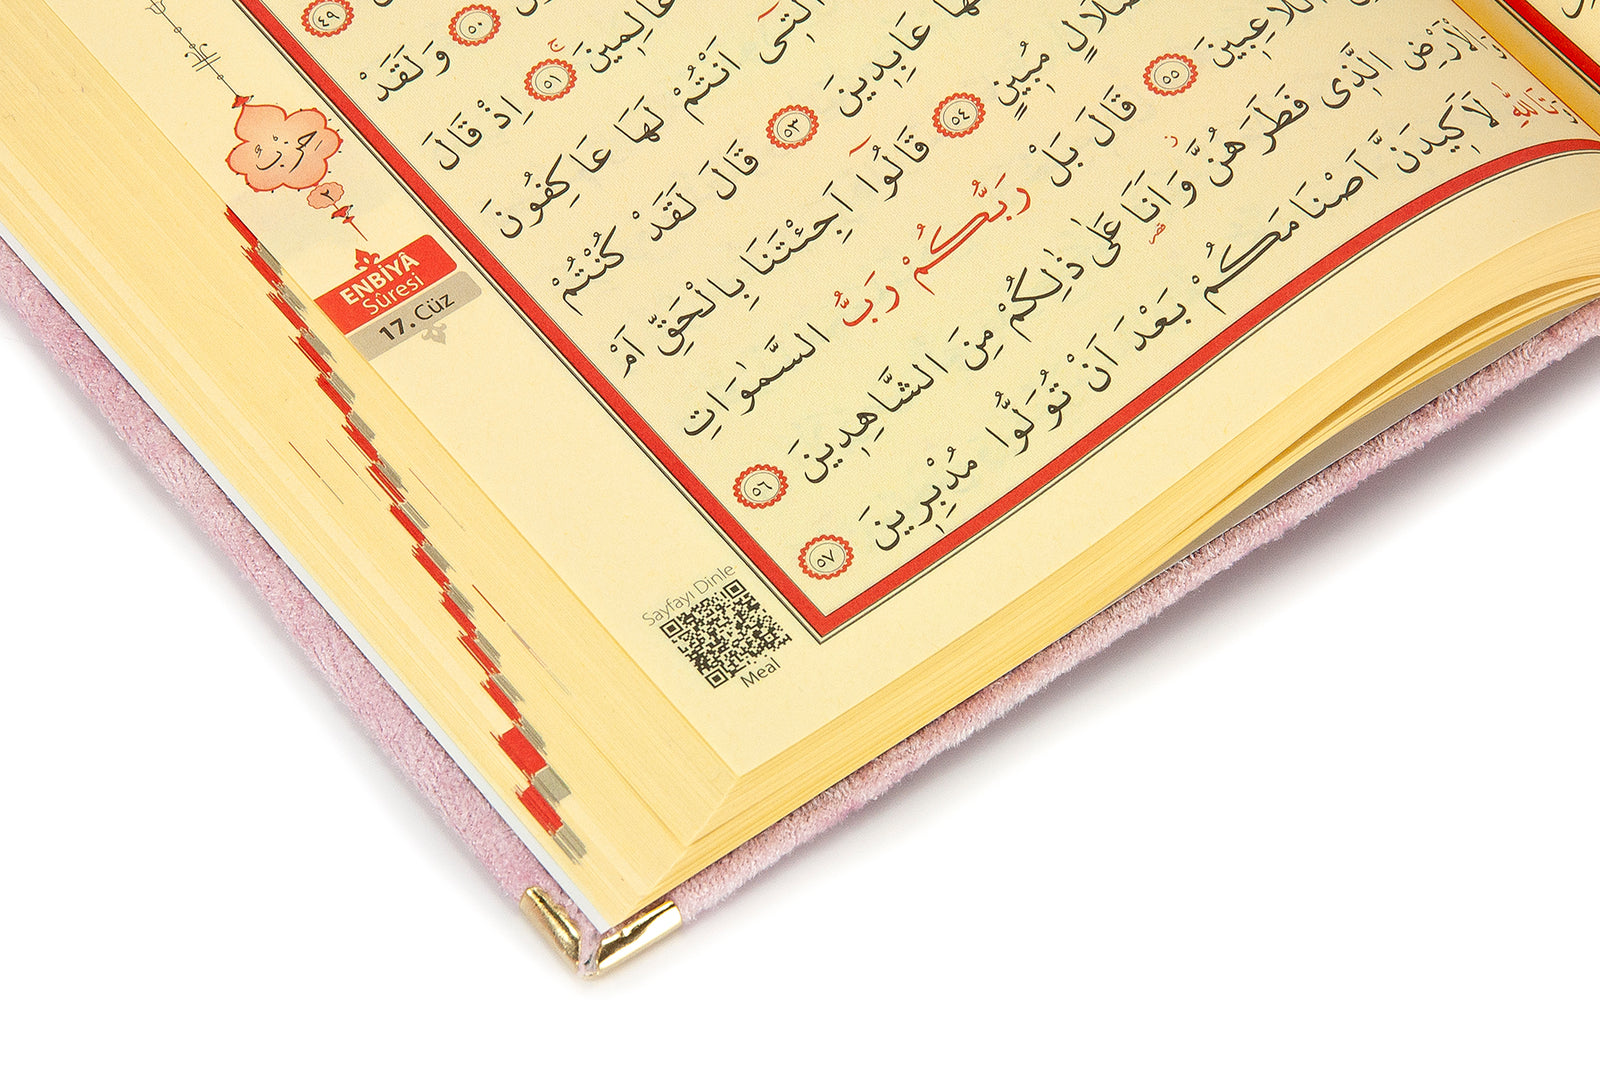 ٤٩
٥٠ وَلَقَدْ
عَالِمِينَ ٥١ اِذْ قَالَ
الَّتٖٓى اَنْتُمْ لَهَا عَاكِفُونَ
لَهَا عَابِدٖينَ ٥٣ قَالَ لَقَدْ كُنْتُمْ
ضَلَالٍ مُبٖينٍ ٥٤ قَالُٓوا اَجِئْتَنَا بِالْحَقِّ اَمْ
اللَّاعِبٖينَ ٥٥ قَالَ بَلْ رَبُّكُمْ رَبُّ السَّمٰوَاتِ
وَالْاَرْضِ الَّذٖى فَطَرَهُنَّ وَاَنَا عَلٰى ذٰلِكُمْ مِنَ الشَّاهِدٖينَ ٥٦
وَتَاللّٰهِ لَاَكٖيدَنَّ اَصْنَامَكُمْ بَعْدَ اَنْ تُوَلُّوا مُدْبِرٖينَ ٥٧
حِزْبٌ
٢
ENBİYÂ
Sûresi
17. Cüz
Sayfayı Dinle
Meal